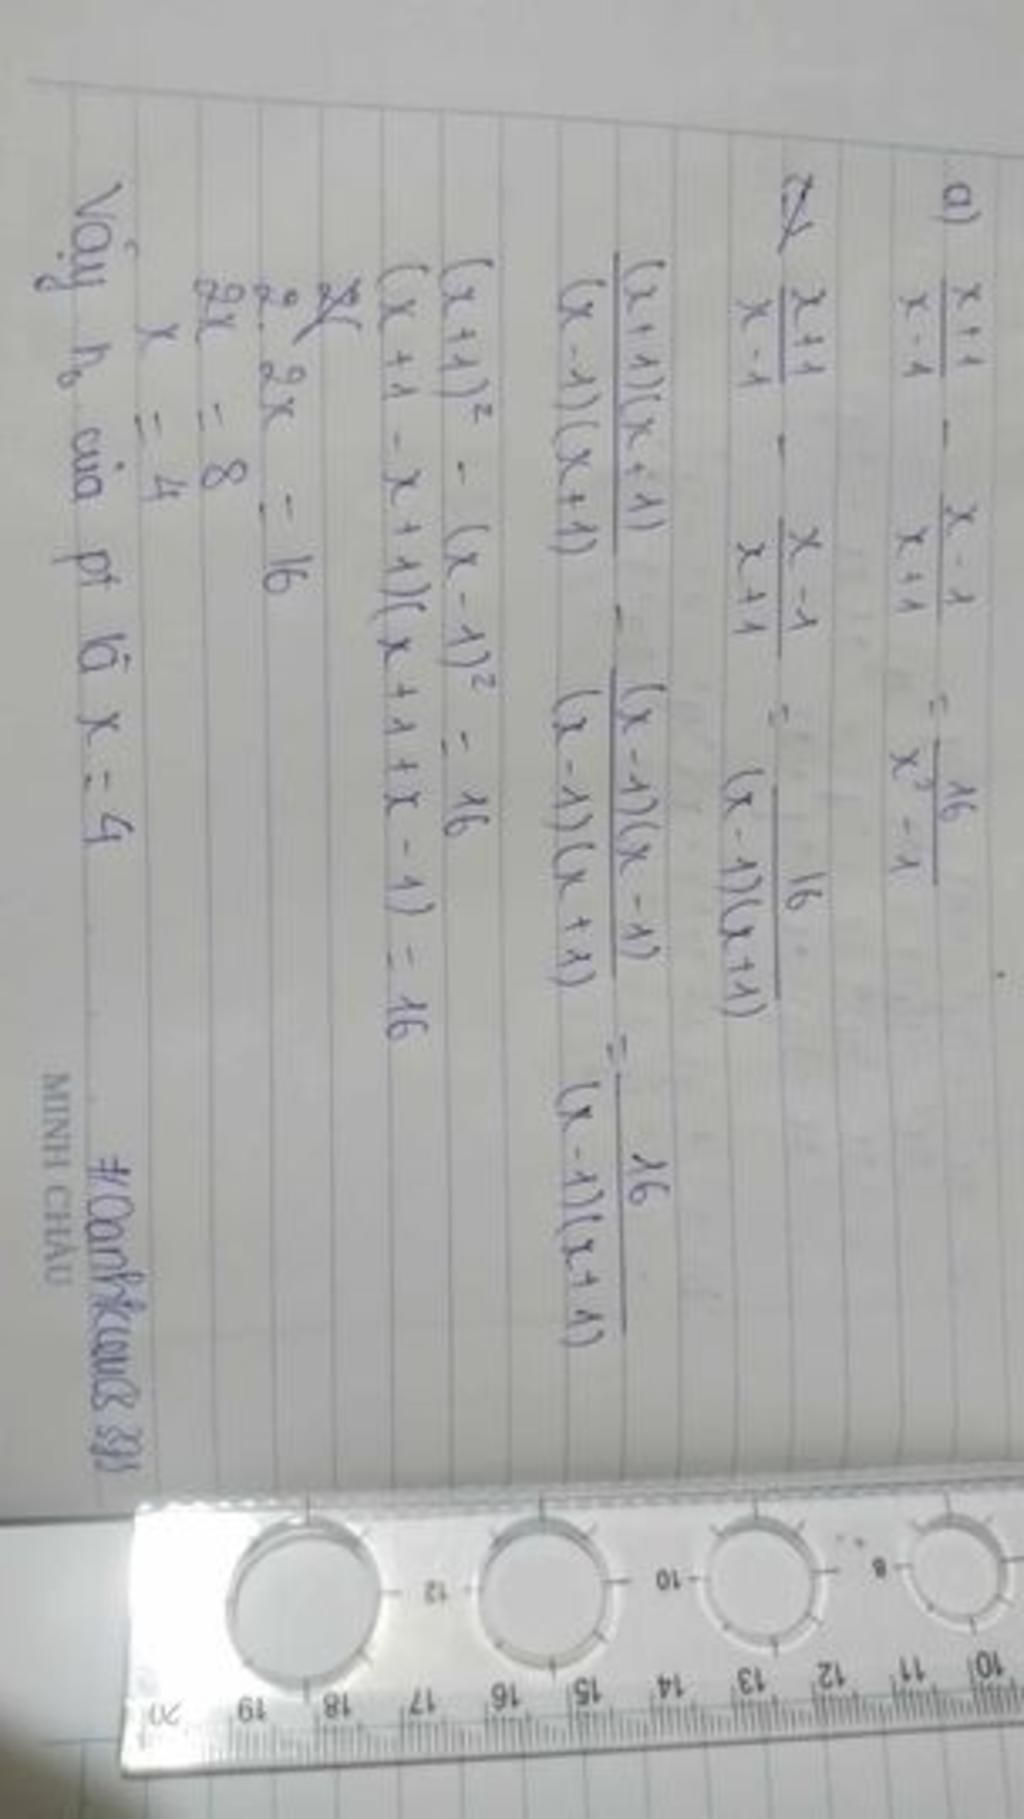 a) \frac{x+1}{x-1} - \frac{x-1}{x+1} = \frac{16}{x^2-1}
\frac{x+1}{x-1} - \frac{x-1}{x+1} = \frac{16}{(x-1)(x+1)}
\frac{(x+1)(x+1)}{(x-1)(x+1)} - \frac{(x-1)(x-1)}{(x-1)(x+1)} = \frac{16}{(x-1)(x+1)}
(x+1)² - (x-1)² = 16
(x+1-x+1)(x+1+x-1) = 16
2. 2x = 16
2x = 8
x = 4
Vậy n₀ của pt là x = 4
MINH CHÂU
8 10 12
10 11 12 13 14 15 16 17 18 19 20